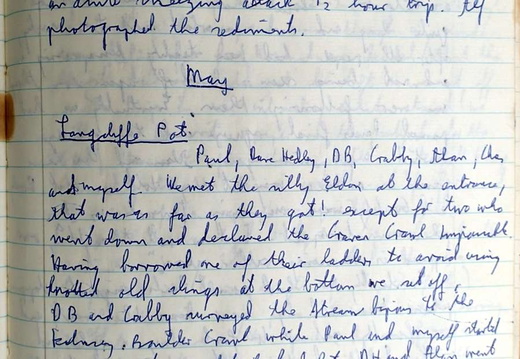 an acute wheezing attack 12 hour trip. Alf
photographed the sediments.
May
Langcliffe Pot
Paul, Dave Hedley, DB, Crabby, Alan, Chas
and myself. We met the silly Eldon at the entrance,
that was as far as they got! except for two who
went down and declared the Craven Crawl impossible.
Having borrowed one of their ladders to avoid using
knotted old slings at the bottom we set off.
DB and Crabby surveyed the stream bypass to the
Boulder Crawl while Paul and myself started
DH and Alan went